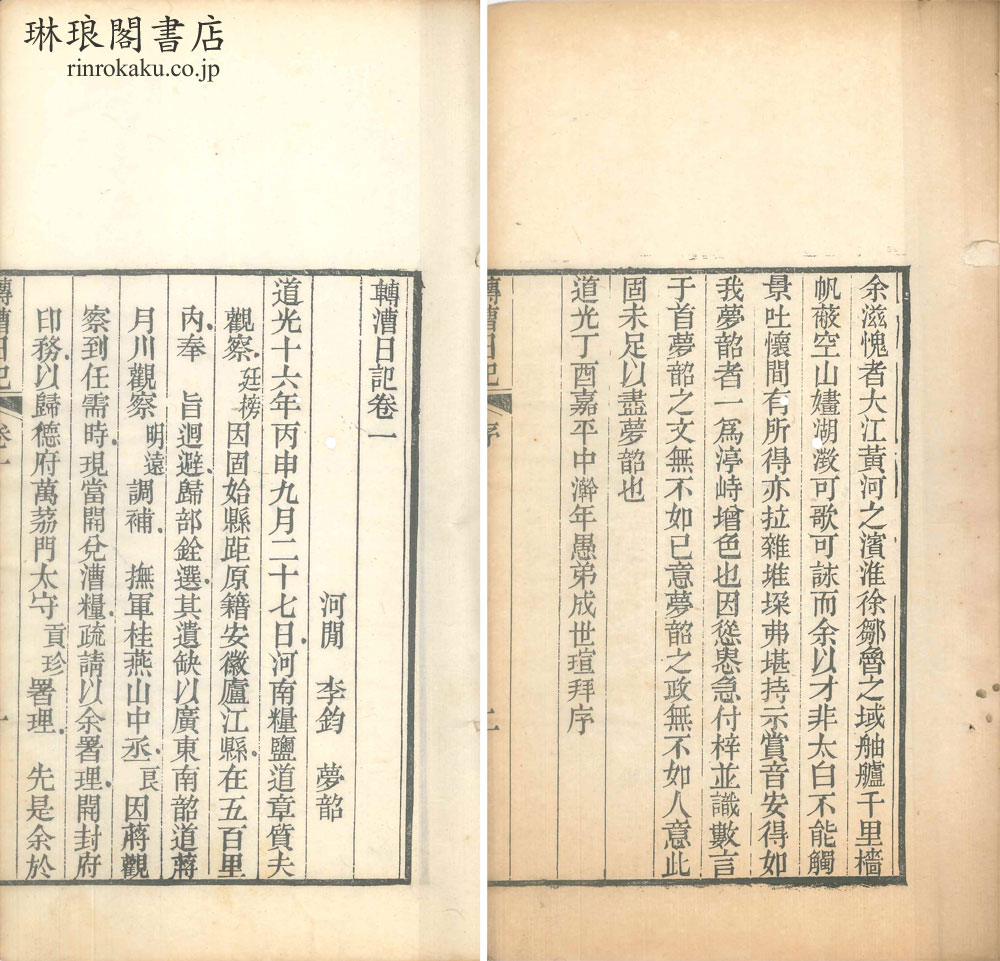 琳琅閣書店
rinrokaku.co.jp
余滋愧者大江黃河之濱淮徐鄒魯之域舳艫千里檣
帆蔽空山湖可歌可詠而余以才非太白不能觸
景吐懷間有所得亦拉雜堆垜弗堪持示賞音安得如
我夢韶者一爲渟峙增色也因慫恿急付梓並識數言
于首夢韶之文無不如已意夢韶之政無不如人意此
固未足以盡夢韶也
道光丁酉嘉平中澣年愚弟成世瑄拜序
轉漕日記 序 二
轉漕日記卷一
河閒 李鈞 夢韶
道光十六年丙申九月二十七日河南糧鹽道章質夫
觀察廷榜因固始縣距原籍安徽廬江縣在五百里
內奉 旨迴避歸部銓選其遺缺以廣東南韶道蔣
月川觀察明遠調補 撫軍桂燕山中丞良因蔣觀
察到任需時現當開兌漕糧疏請以余署理開封府
印務以歸德府萬荔門太守貢珍署理 先是余於
轉漕日記 卷一 一